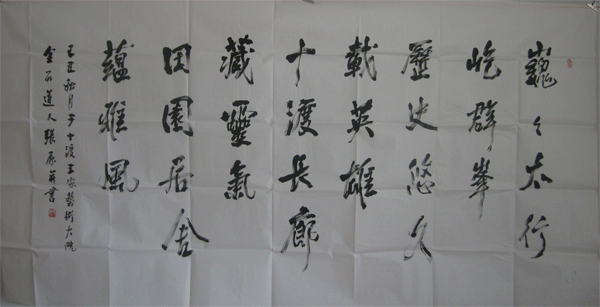 巍々太行
屹群峯
歷史悠久
載英雄
十渡長廊
藏靈氣
田園居舍
蘊雅風
己丑秋月于十渡王家藝術大院
金石道人張書